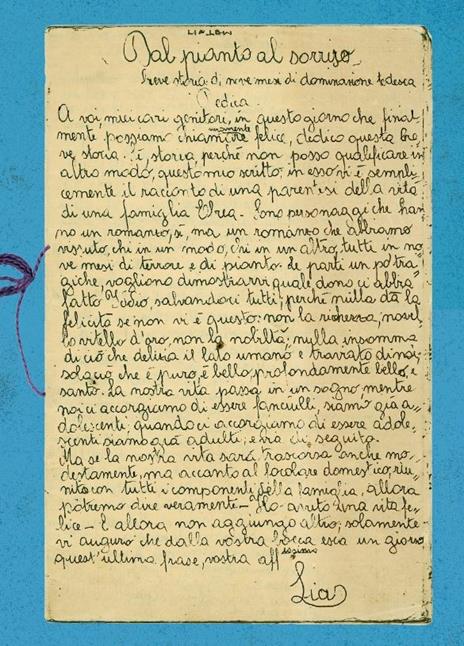 Dal pianto al sorriso
breve storia di nove mesi di dominazione tedesca
Dedica
A voi, miei cari genitori, in questo giorno che final-
mente possiamo chiamare veramente felice, dedico questa bre
ve storia. È storia perché non posso qualificare in
altro modo, questo mio scritto; in esso vi è sempli
cemente il racconto di una parentesi della vita
di una famiglia Ebrea. Sono personaggi che han
no un romanzo, si, ma un romanzo che abbiamo
vissuto, chi in un modo, chi in un altro, tutti in no-
ve mesi di terrore e di pianto. Le parti un po' tra-
giche, vogliono dimostrarvi quale dono ci abbia
fatto Iddio, salvandoci tutti; perché nulla dà la
felicità se non vi è questo: non la ricchezza, non il
vitello d'oro, non la nobiltà; nulla insomma
di ciò che delizia il lato umano e
solo ciò che è puro, è bello, profondamente bello, e
santo. La nostra vita passa in un sogno, mentre
noi ci accorgiamo di essere fanciulli, siamo già a-
dolescenti, quando ci accorgiamo di essere adole-
scenti siamo già adulti; e via di seguito.
Ma se la nostra vita sarà trascorsa anche mo-
destamente, ma accanto al focolare domestico, riu-
nito con tutti i componenti della famiglia, allora
potremo dire veramente - Ho avuto una vita fe-
lice - E allora non aggiungo altro; solamente
vi auguro che dalla vostra bocca esca un giorno
quest'ultima frase, vostra aff.issima
Lia